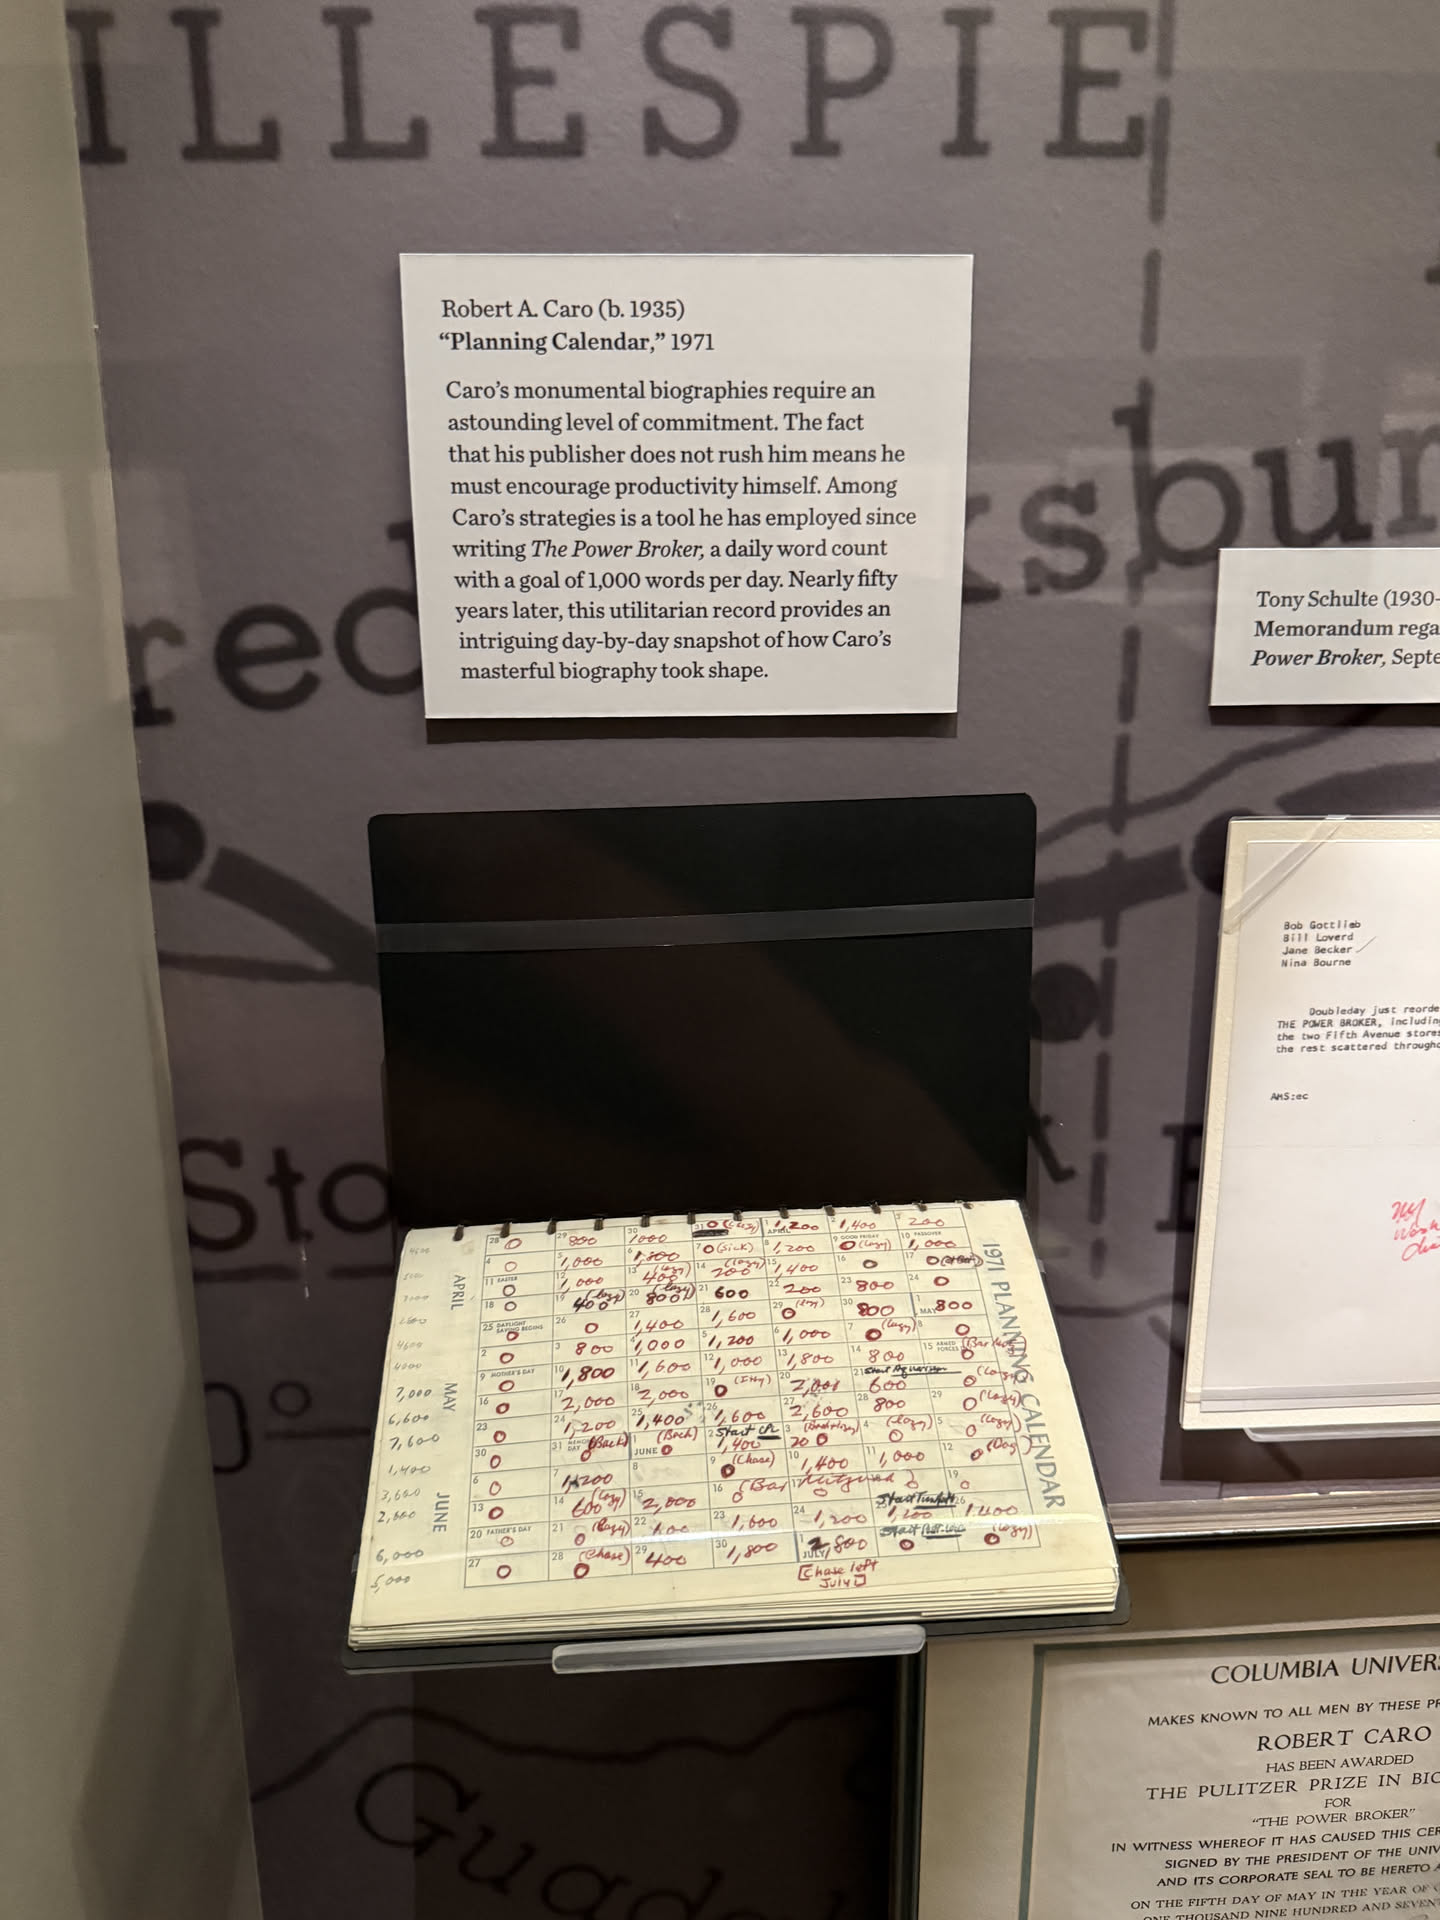 ILLESPIE
Robert A. Caro (b. 1935)
“Planning Calendar,” 1971
Caro’s monumental biographies require an
astounding level of commitment. The fact
that his publisher does not rush him means he
must encourage productivity himself. Among
Caro’s strategies is a tool he has employed since
writing The Power Broker, a daily word count
with a goal of 1,000 words per day. Nearly fifty
years later, this utilitarian record provides an
intriguing day-by-day snapshot of how Caro’s
masterful biography took shape.
red ksbur
Tony Schulte (1930-
Memorandum rega
Power Broker, Septe
Bob Gottlieb
Bill Loverd
Jane Becker
Nina Bourne
Doubleday just reorde
THE POWER BROKER, includin
the two Fifth Avenue store
the rest scattered througho
AMS:ec
Sto
0°
1971 PLANNING CALENDAR
APRIL
MAY
JUNE
28 0 29 800 30 1000 31 0 (Lazy) 1 APRIL 1,200 2 1,400 3 200
4 0 5 1,000 6 1,800 7 0 (Sick) 8 1,200 9 GOOD FRIDAY 0 (Lazy) 10 PASSOVER 1,000
11 EASTER 0 12 1,000 13 400 (Lazy) 14 200 (Lazy) 15 1,400 16 0 17 0
18 0 19 400 (Lazy) 20 800 (Lazy) 21 600 22 200 23 800 24 0
25 DAYLIGHT SAVING BEGINS 0 26 0 27 1,400 28 1,600 29 0 (Lazy) 30 800 1 MAY 800
2 0 3 800 4 1,000 5 1,200 6 1,000 7 0 (Lazy) 8 0
9 MOTHER'S DAY 0 10 1,800 11 1,600 12 1,000 13 1,800 14 800 15 ARMED FORCES 0
16 0 17 2,000 18 2,000 19 0 20 2,000 21 start 600 0 (Lazy)
23 0 24 1,200 25 1,400 26 1,600 27 2,600 28 800 29 0 (Lazy)
30 0 31 MEMORIAL DAY 0 (Back) 1 JUNE 0 (Back) 2 start 1,400 3 0 4 0 (Lazy) 5 0 (Lazy)
6 0 7 1,200 8 9 0 (Chase) 10 1,400 11 1,000 12 0
13 0 14 600 (Lazy) 15 2,000 16 0 (Bar 17 0 19 0
20 FATHER'S DAY 0 21 0 (Lazy) 22 23 1,600 24 1,200 start 1,200 26 1,400
27 0 28 0 (Chase) 29 400 30 1,800 1 JULY 2,800 start 0 0 (Lazy)
[Chase left
July 1]
7,000
6,600
7,600
1,400
3,600
6,000
5,000
Guada
COLUMBIA UNIVERS
MAKES KNOWN TO ALL MEN BY THESE PR
ROBERT CARO
HAS BEEN AWARDED
THE PULITZER PRIZE IN BIO
FOR
“THE POWER BROKER”
IN WITNESS WHEREOF IT HAS CAUSED THIS CER
SIGNED BY THE PRESIDENT OF THE UNIV
AND ITS CORPORATE SEAL TO BE HERETO A
ON THE FIFTH DAY OF MAY IN THE YEAR OF
ONE THOUSAND NINE HUNDRED AND SEVENT